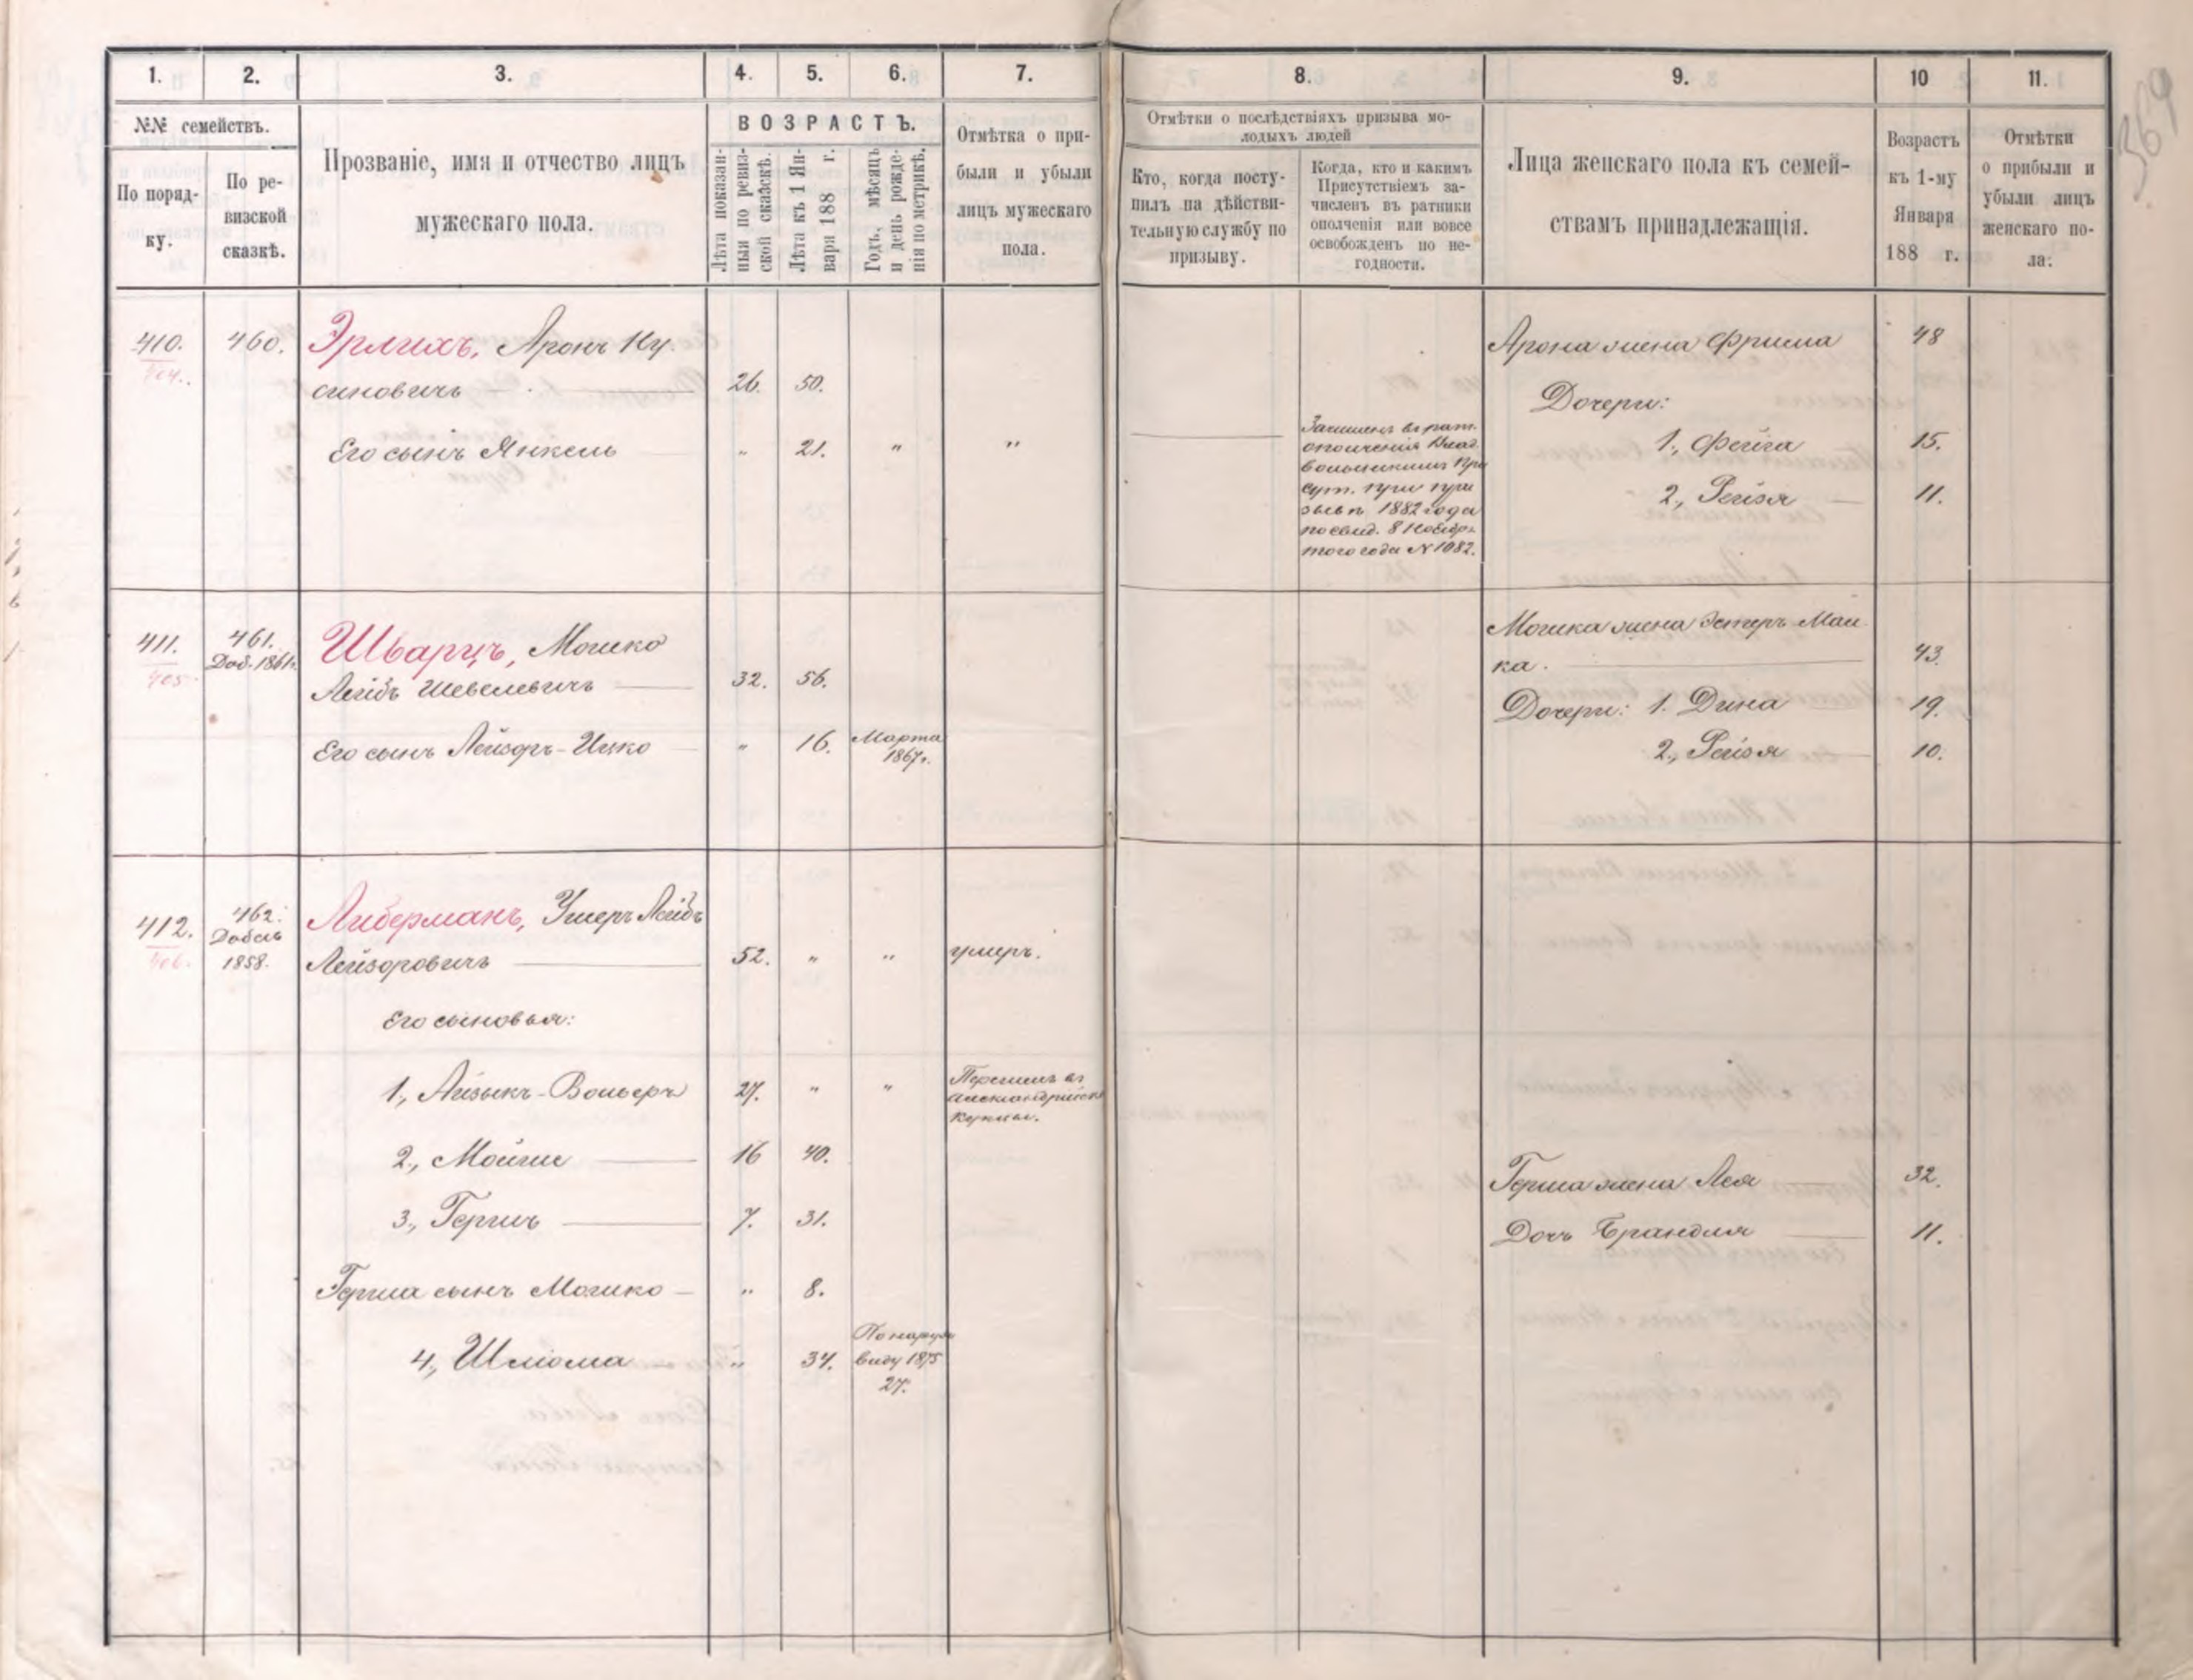 1.
2.
3.
4.
5.
6.
7.
8.
9.
10
11.
№№ семействъ.
По поряд-
ку.
По ре-
визской
сказкѣ.
Прозваніе, имя и отчество лицъ
мужескаго пола.
ВОЗРАСТЪ.
Лѣта показан-
ныя по ревиз-
ской сказкѣ.
Лѣта къ 1 Ян-
варя 188 г.
Годъ, мѣсяцъ
и день рожде-
нія по метрикѣ.
Отмѣтка о при-
были и убыли
лицъ мужескаго
пола.
Отмѣтки о послѣдствіяхъ призыва мо-
лодыхъ людей
Кто, когда посту-
пилъ на дѣйстви-
тельную службу по
призыву.
Когда, кто и какимъ
Присутствіемъ за-
численъ въ ратники
ополченія или вовсе
освобожденъ по не-
годности.
Лица женскаго пола къ семей-
ствамъ принадлежащія.
Возрастъ
къ 1-му
Января
188 г.
Отмѣтки
о прибыли и
убыли лицъ
женскаго по-
ла:
369
410.
404.
460.
Эрлихъ, Аронъ Ну-
синовичъ 26. 50.
Его сынъ Янкель " 21. " "
Зачисленъ въ рат.
ополченія Влад.
вольскимъ При
сут. при при
зывѣ 1882 года
по свид. 8 Ноября
того года № 1082.
Арона жена Фрима 48
Дочери:
1., Фейга 15.
2., Рейзя 11.
411.
405.
461.
Доб. 1861 г.
Шварцъ, Мошко
Лейбъ Шевелевичъ 32. 56.
Его сынъ Лейзоръ-Ицко " 16. Марта
1867 г.
Мошка жена Эстеръ Мал
ка. 43.
Дочери: 1. Дина 19.
2., Рейзя 10.
412.
406.
462.
1858.
Либерманъ, Ушеръ Лейбъ
Лейзоровичъ 52. " " умеръ.
Его сыновья:
1., Айзыкъ-Вольеръ 27. " " Перечисл. въ
Александрійск.
купцы.
2., Мойше 16 40.
3., Гершъ 7. 31.
Герша сынъ Мошко " 8.
4., Шлиома " 34. По наруж.
виду 1875
27.
Герша жена Лея 32.
Дочь Брандля 11.